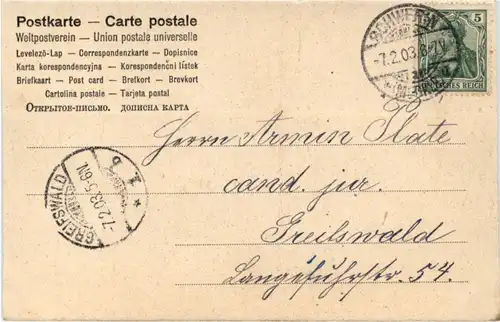 Postkarte — Carte postale
Weltpostverein — Union postale universelle
Levelező-Lap — Correspondenzkarte — Dopisnice
Karta korespondencyjna — Korespondenční lístek
Briefkaart — Post card — Brefkort — Brevkort
Cartolina postale — Tarjeta postal
Открытое-письмо. дописна карта
5
DEUTSCHES REICH
-7.2.03.
Herrn Armin Plate
cand. jur.
Greifswald
Langefuhrstr. 54.
GREIFSWALD
-7.2.03.5-6N.